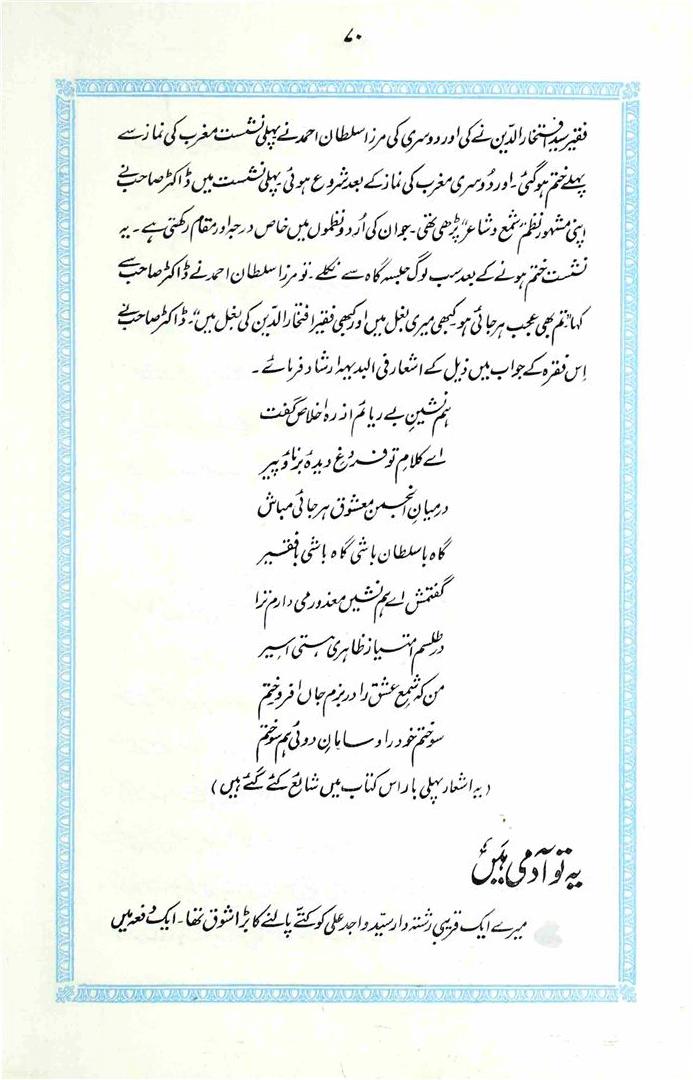 ۷۰
فقیر سید افتخار الدین نے کی اور دوسری کی مرزا سلطان احمد نے پہلی نشست مغرب کی نماز سے
پہلے ختم ہو گئی ۔ اور دُوسری مغرب کی نماز کے بعد شروع ہوئی پہلی نشست میں ڈاکٹر صاحب نے
اپنی مشہور نظم ”شمع و شاعر“ پڑھی تھی ۔ جو ان کی اُردو نظموں میں خاص درجہ اور مقام رکھتی ہے ۔ یہ
نشست ختم ہونے کے بعد سب لوگ جلسہ گاہ سے نکلے ۔ تو مرزا سلطان احمد نے ڈاکٹر صاحب سے
کہا ”تم بھی عجب ہرجائی ہو کبھی میری بغل میں اور کبھی فقیر افتخار الدین کی بغل میں“ ۔ ڈاکٹر صاحب نے
اِس فقرہ کے جواب میں ذیل کے اشعار فی البدیہہ ارشاد فرمائے ۔
ہم نشینِ بے ریائم از رہِ اخلاص گفت
اے کلامِ تو فروغِ دیدۂ برنا و پیر
درمیانِ انجمن معشوق ہرجائی مباش
گاہ با سلطان باشی گاہ باشی با فقیر
گفتمش اے ہم نشیں معذور می دارم ترا
در طلسمِ امتیاز ظاہری ہستی اسیر
من کہ شمعِ عشق را در بزمِ جاں افروختم
سوختم خود را و سامانِ دوئی ہم سوختم
(یہ اشعار پہلی بار اس کتاب میں شایع کئے گئے ہیں)
یہ تو آدمی ہیں
میرے ایک قریبی رشتہ دار سیّد واجد علی کو کُتّے پالنے کا بڑا شوق تھا ۔ ایک دفعہ میں